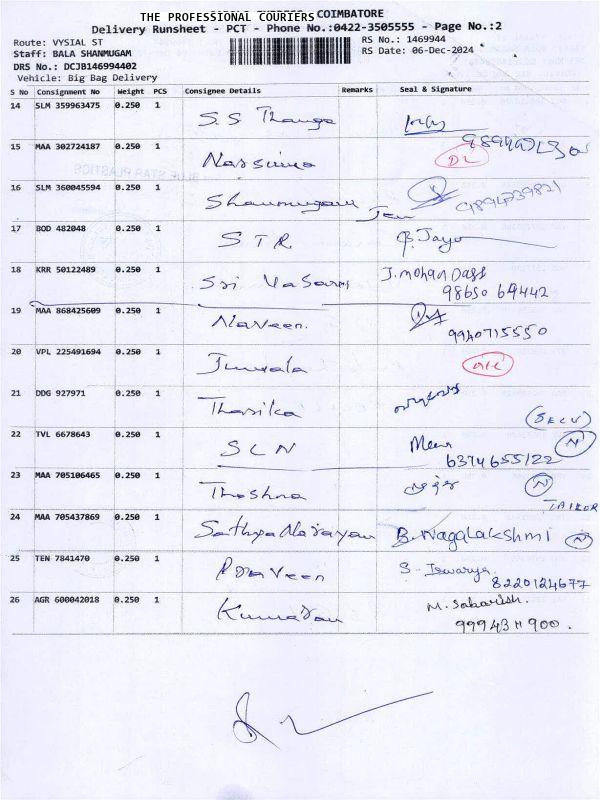 THE PROFESSIONAL COURIERS COIMBATORE
Delivery Runsheet - PCT - Phone No.:0422-3505555 - Page No.:2
Route: VYSIAL ST
Staff: BALA SHANMUGAM
DRS No.: DCJB146994402
Vehicle: Big Bag Delivery
RS No.: 1469944
RS Date: 06-Dec-2024
S No Consignment No Weight PCS Consignee Details Remarks Seal & Signature
14 SLM 359963475 0.250 1 S.S Thanga
15 MAA 302724187 0.250 1 DL
16 SLM 360045594 0.250 1 Shanmugam 9894739821
17 BOD 482048 0.250 1 STR Jaya
18 KRR 50122489 0.250 1 Sri J.mohan Dass
98650 69442
19 MAA 868425609 0.250 1 Naveen.
9940715550
20 VPL 225491694 0.250 1
21 DDG 927971 0.250 1 Tharika
(SELV)
22 TVL 6678643 0.250 1 SLN N
6374655122
23 MAA 705106465 0.250 1 N
24 MAA 705437869 0.250 1 Sathya Narayan B. Nagalakshmi N
25 TEN 7841470 0.250 1 Praveen S. Iswarya
8220124677
26 AGR 600042018 0.250 1 Kumaran M. Sabarish.
9994311900.